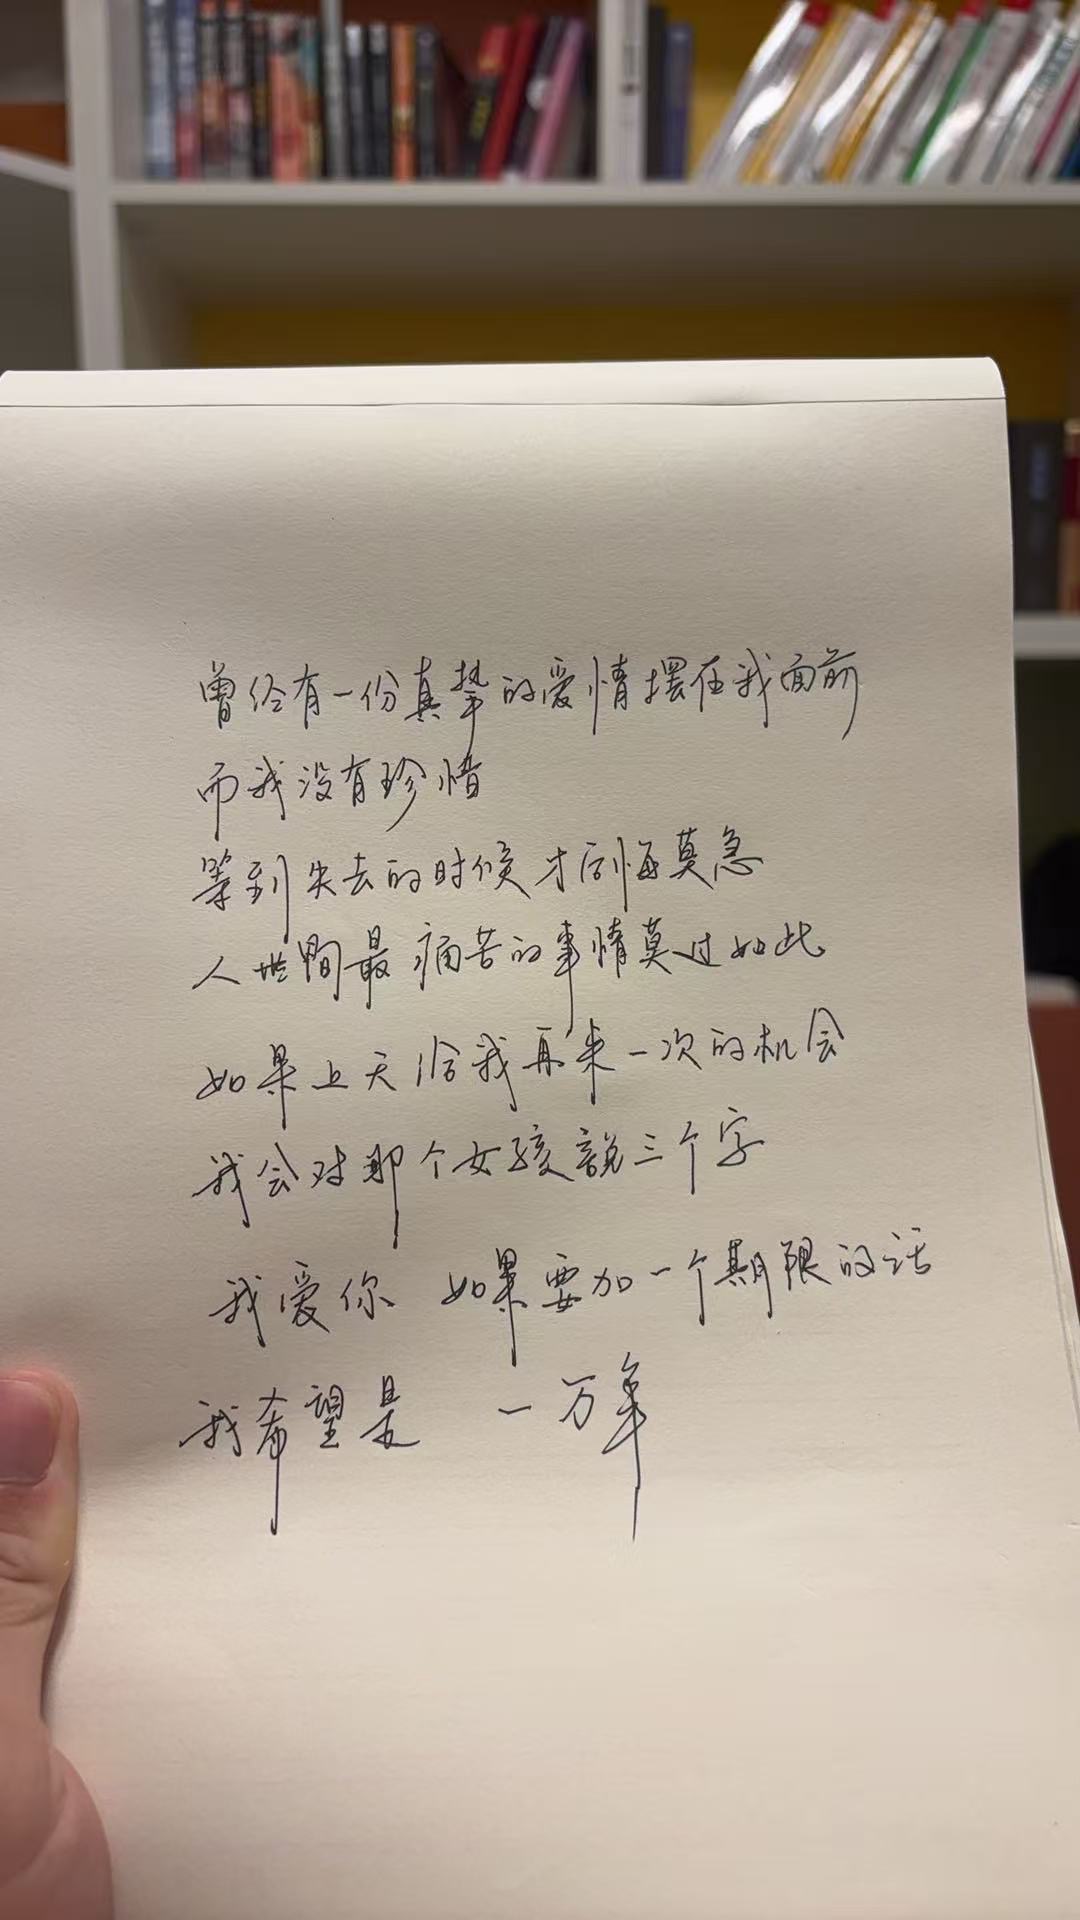 曾经有一份真挚的爱情摆在我面前
而我没有珍惜
等到失去的时候才后悔莫急
人世间最痛苦的事情莫过如此
如果上天给我再来一次的机会
我会对那个女孩說三个字
我爱你 如果要加一个期限的话
我希望是 一万年